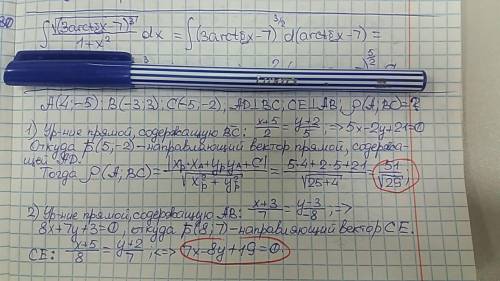 ∫ √(3arctgx-7)³ / 1+x² dx = ∫(3arctgx-7)^3/2 d(arctgx-7)=
A(4;-5); B(-3;3); C(-5;-2), AD⊥BC; CE⊥AB; ρ(A;BC)=?
1) Ур-ние прямой, содержащую BC: x+5/2 = y+2/5; => 5x-2y+21=0
Откуда p̄(5;-2)-направляющий вектор прямой, содержа-
щей AD.
Тогда ρ(A;BC)= |xₚ·xₐ+yₚ·yₐ+C| / √(xₚ²+yₚ²) = 5·4+2·5+21 / √(25+4) = 51/√29;
2) Ур-ние прямой, содержащую AB: x+3/7 = y-3/-8; =>
8x+7y+3=0, откуда p̄(8;7)-направляющий вектор CE.
CE: x+5/8 = y+2/7; <=> 7x-8y+19=0.